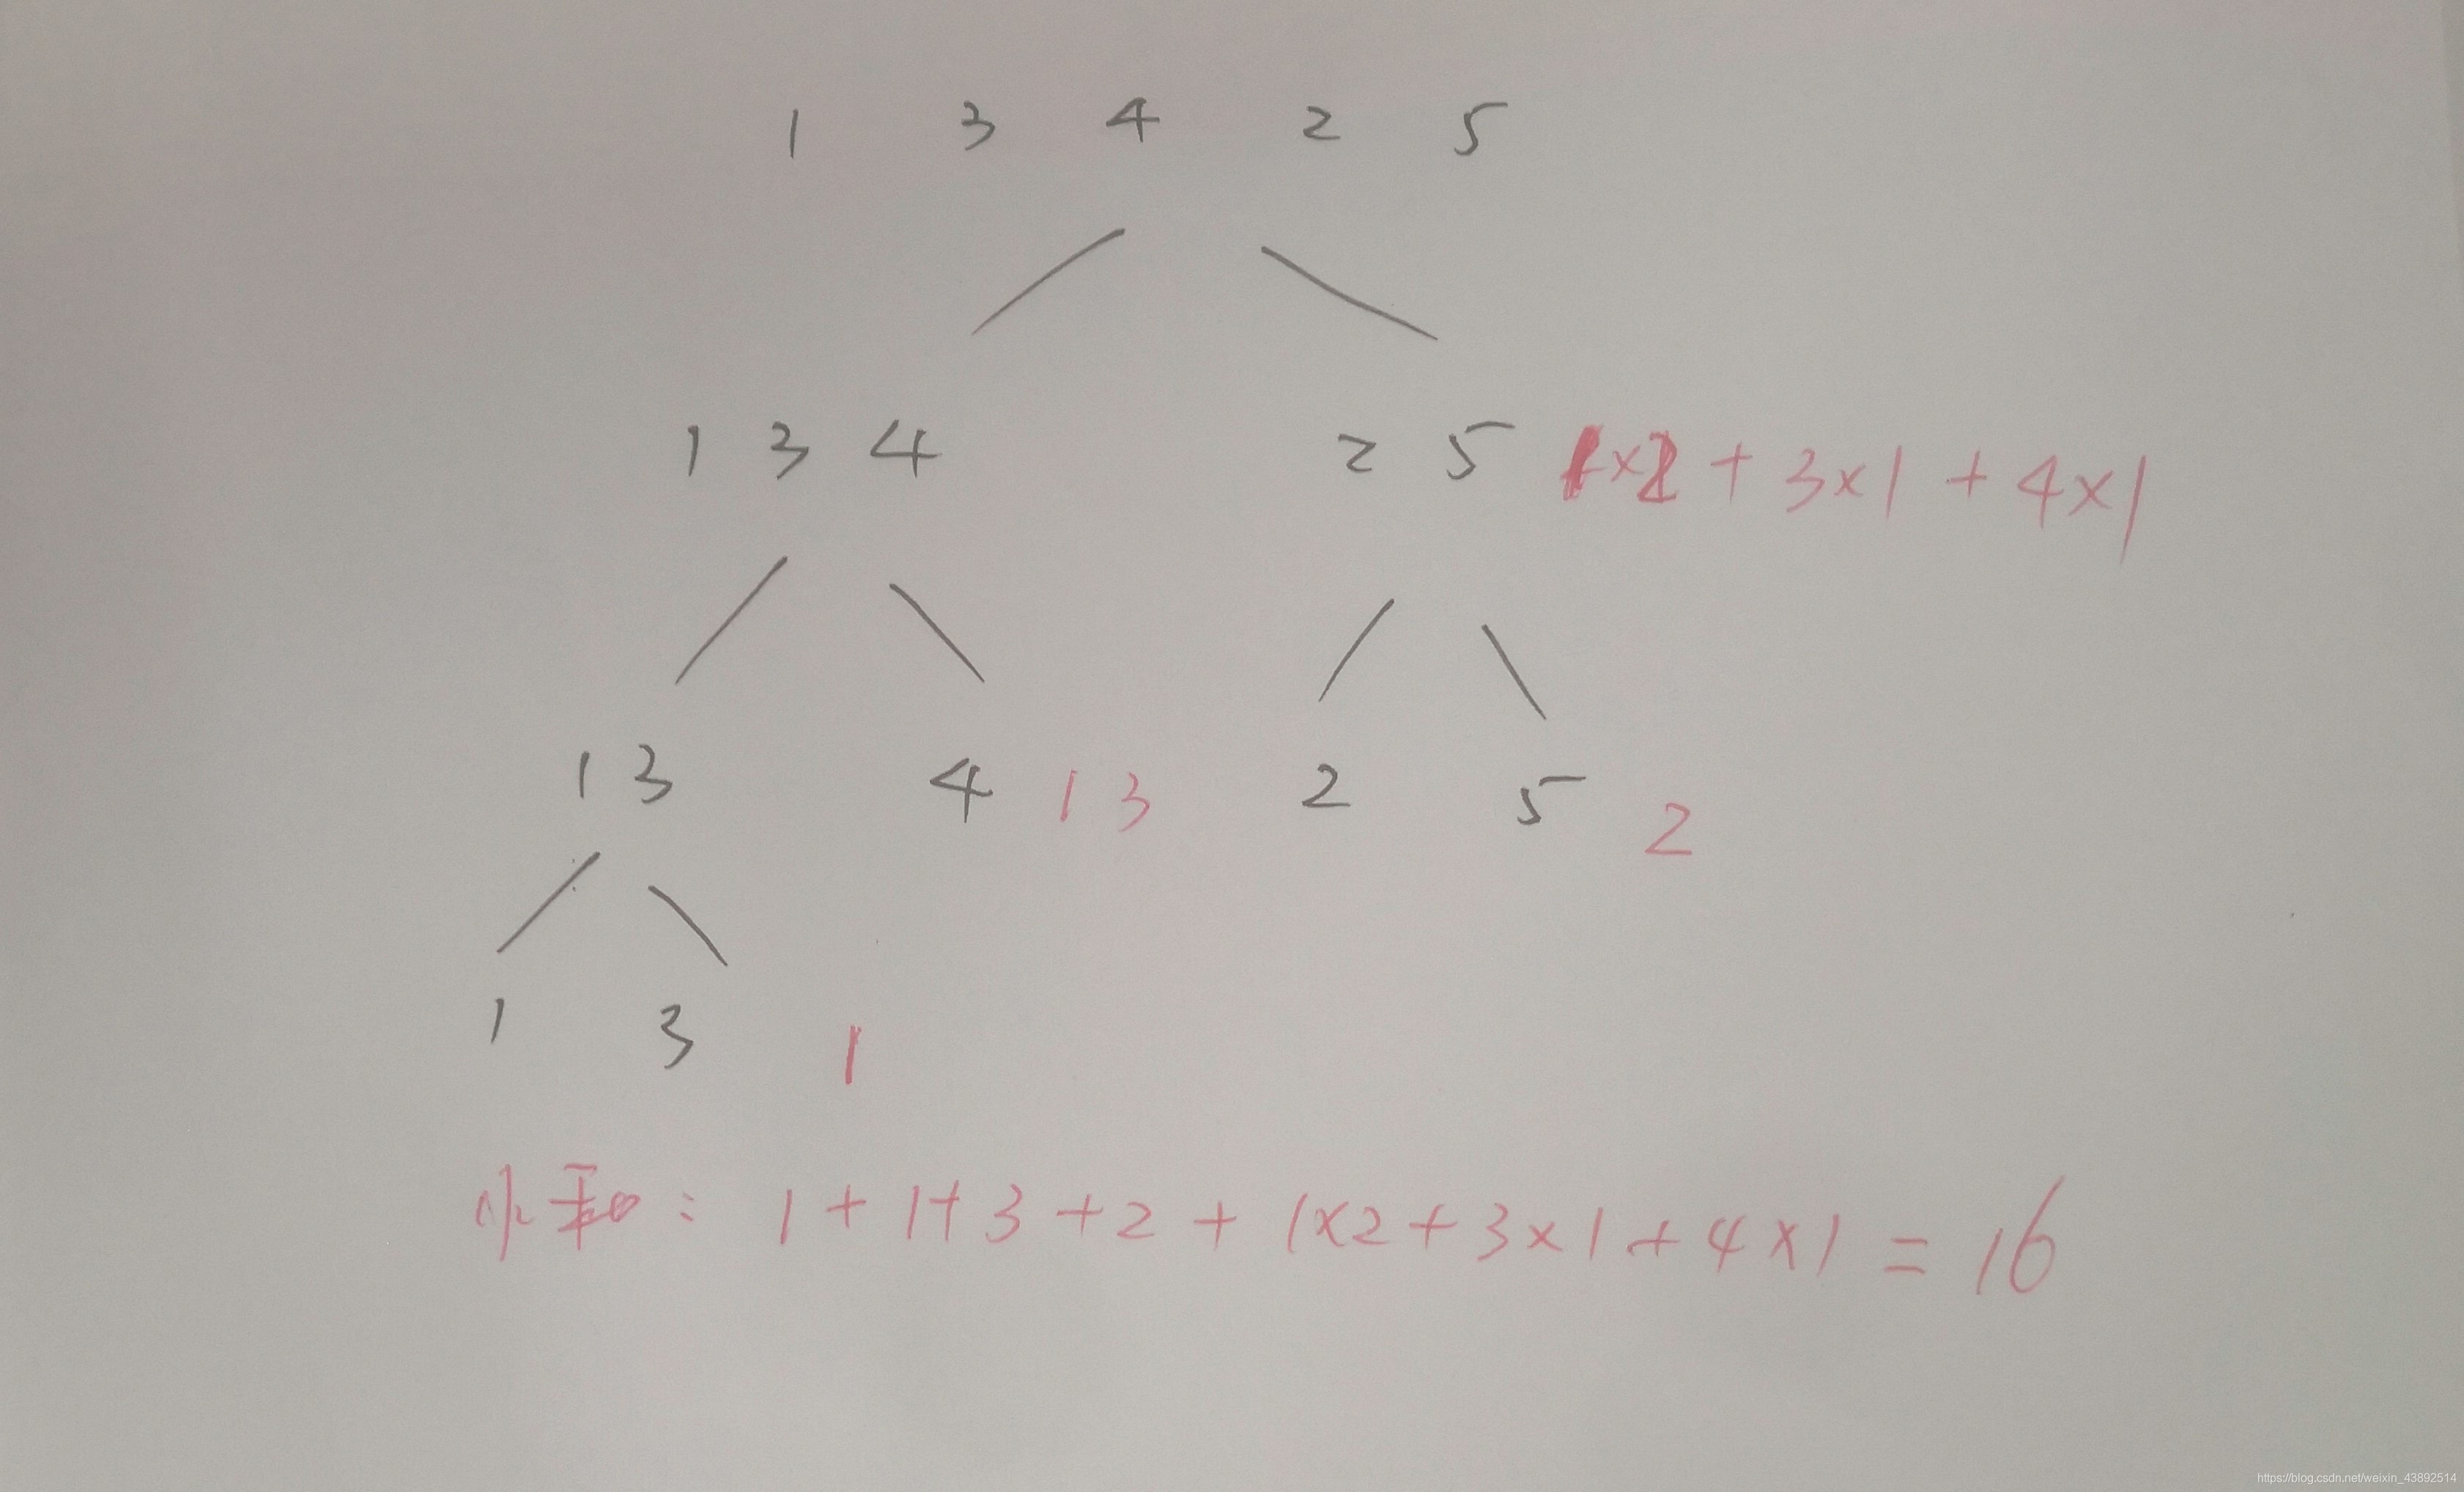 1 3 4 2 5
1 3 4 2 5 1×2 + 3×1 + 4×1
1 3 4 1 3 2 5 2
1 3 1
小和: 1 + 1 + 3 + 2 + 1×2 + 3×1 + 4×1 = 16
https://blog.csdn.net/weixin_43892514